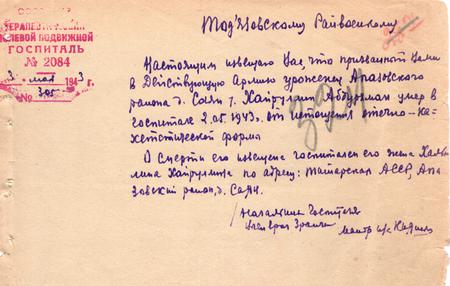 ТЕРАПЕВТ
ПОЛЕВОЙ ПОДВИЖНОЙ
ГОСПИТАЛЬ
№ 2084
3. мая 1943 г.
№ 305
Райвоенкому
Настоящим извещаю Вас, что призванный Вами
в Действующую Армию уроженец Апазовского
района д. Сая т. Хайрулин Абдурман умер в
госпитале 2.05.1943г. от истощения отечно-ка-
хетстической форма
О смерти его извещена госпиталем его жена
Хайрулина по адресу: Татарская АССР, Апа-
зовский район, д. Сая.
Начальник Госпиталя
майор м/с